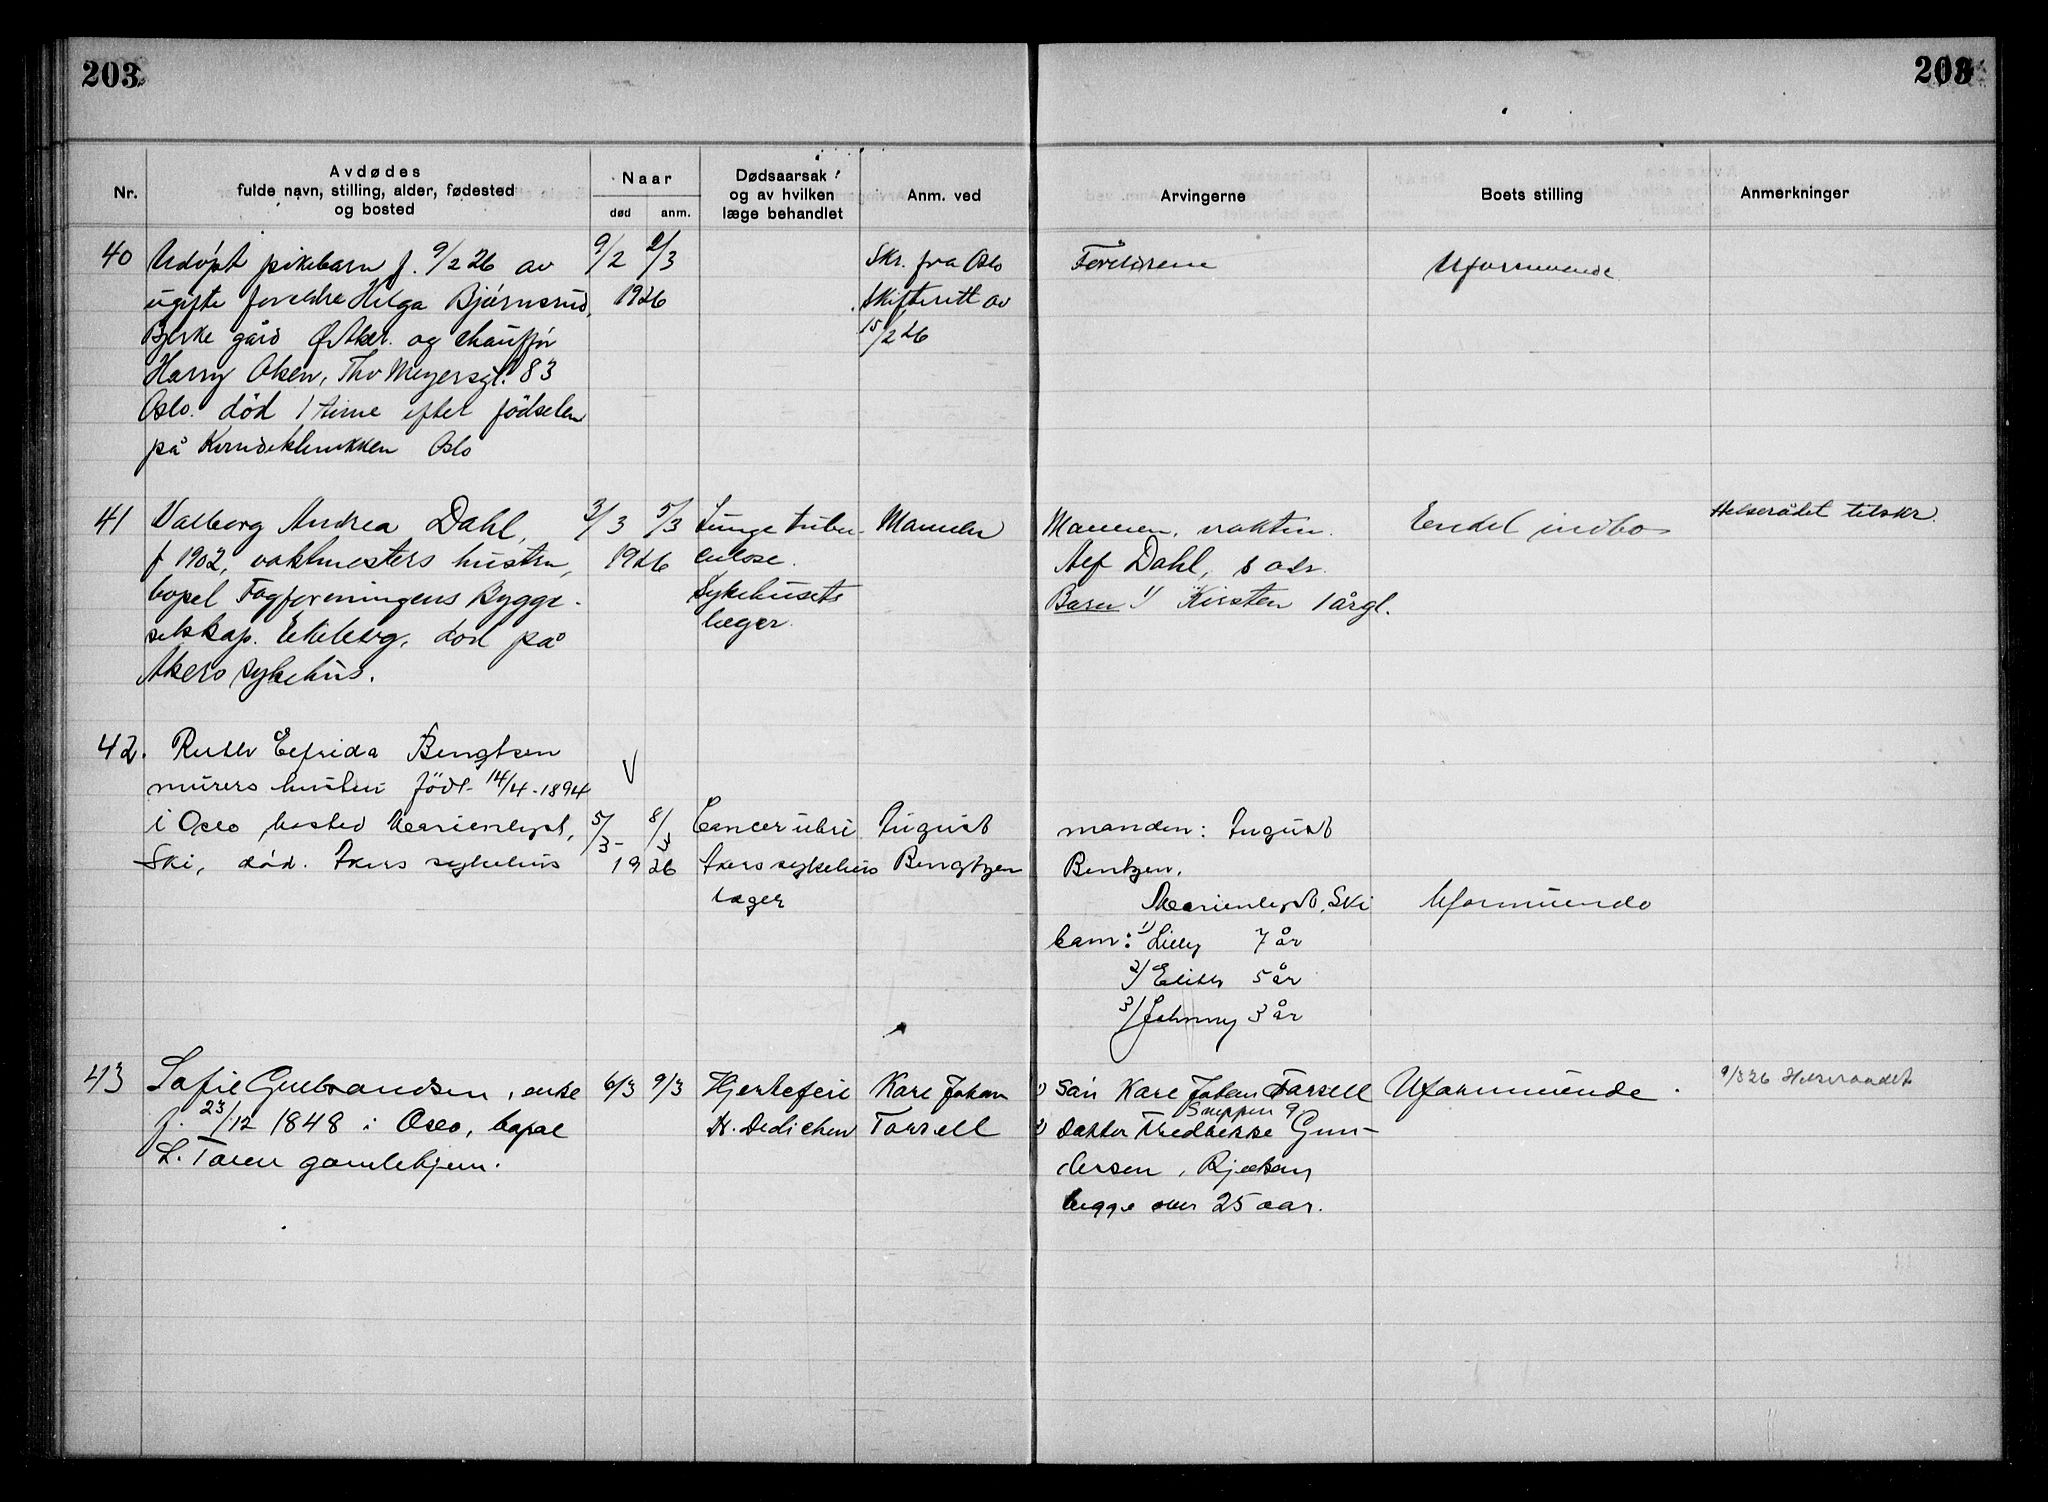 203
203
Nr.
Avdødes
fulde navn, stilling, alder, fødested
og bosted
Naar
død
anm.
Dødsaarsak
og av hvilken
læge behandlet
Anm. ved
Arvingerne
Boets stilling
Anmerkninger
40
Udöpt pikebarn f. 9/2 26 av
ugifte foreldre Helga Bjørnsrud,
Bjerke gård Ø. Aker. og chauffør
Harry Olsen, Thv Meyersgt. 83
Oslo. död 1 time efter födselen
på Kvindeklinikken Oslo
9/2 2/3
1926
Skr. fra Oslo
Skifterett av
15/2 26
Foreldrene
Uformuende
41
Valborg Andrea Dahl,
f 1902, vaktmesters hustru,
bopel Fagforeningens Bygge-
selskap. Ekeberg, död på
Akers sykehus.
3/3 5/3
1926
Lunge tuber-
culose.
Sykehusets
læger.
Mannen
Mannen, vaktm.
Alf Dahl, s adr.
Barn 1) Kirsten 1 årgl.
Endel indbo
Helserådet tilskr.
42.
Ruth Elfrida Bengtsen
murers hustru född 14/4-1894
i Oslo, bosted Marienlyst,
Ski, död. Akers sykehus
5/3- 8/3
1926
Cancer uteri
Akers sykehus
læger
August
Bengtzen
manden: August
Bentzen,
Marienlyst, Ski
barn: 1) Lilly 7 år
2/ Edith 5 år
3/ Johnny 3 år
Uformuende
43
Sofie Gulbrandsen, enke
f. 23/12 1848 i Oslo, bopæl
L. Tøien gamlehjem.
6/3 9/3
Hjertefeil
K. Dedichen
Karl Johan
Torsell
1) Sön Karl Johan Torsell
2) Datter Fredrikke Gun-
dersen, Rjukan
begge over 25 aar.
Uformuende
9/3 26 Helseraadet